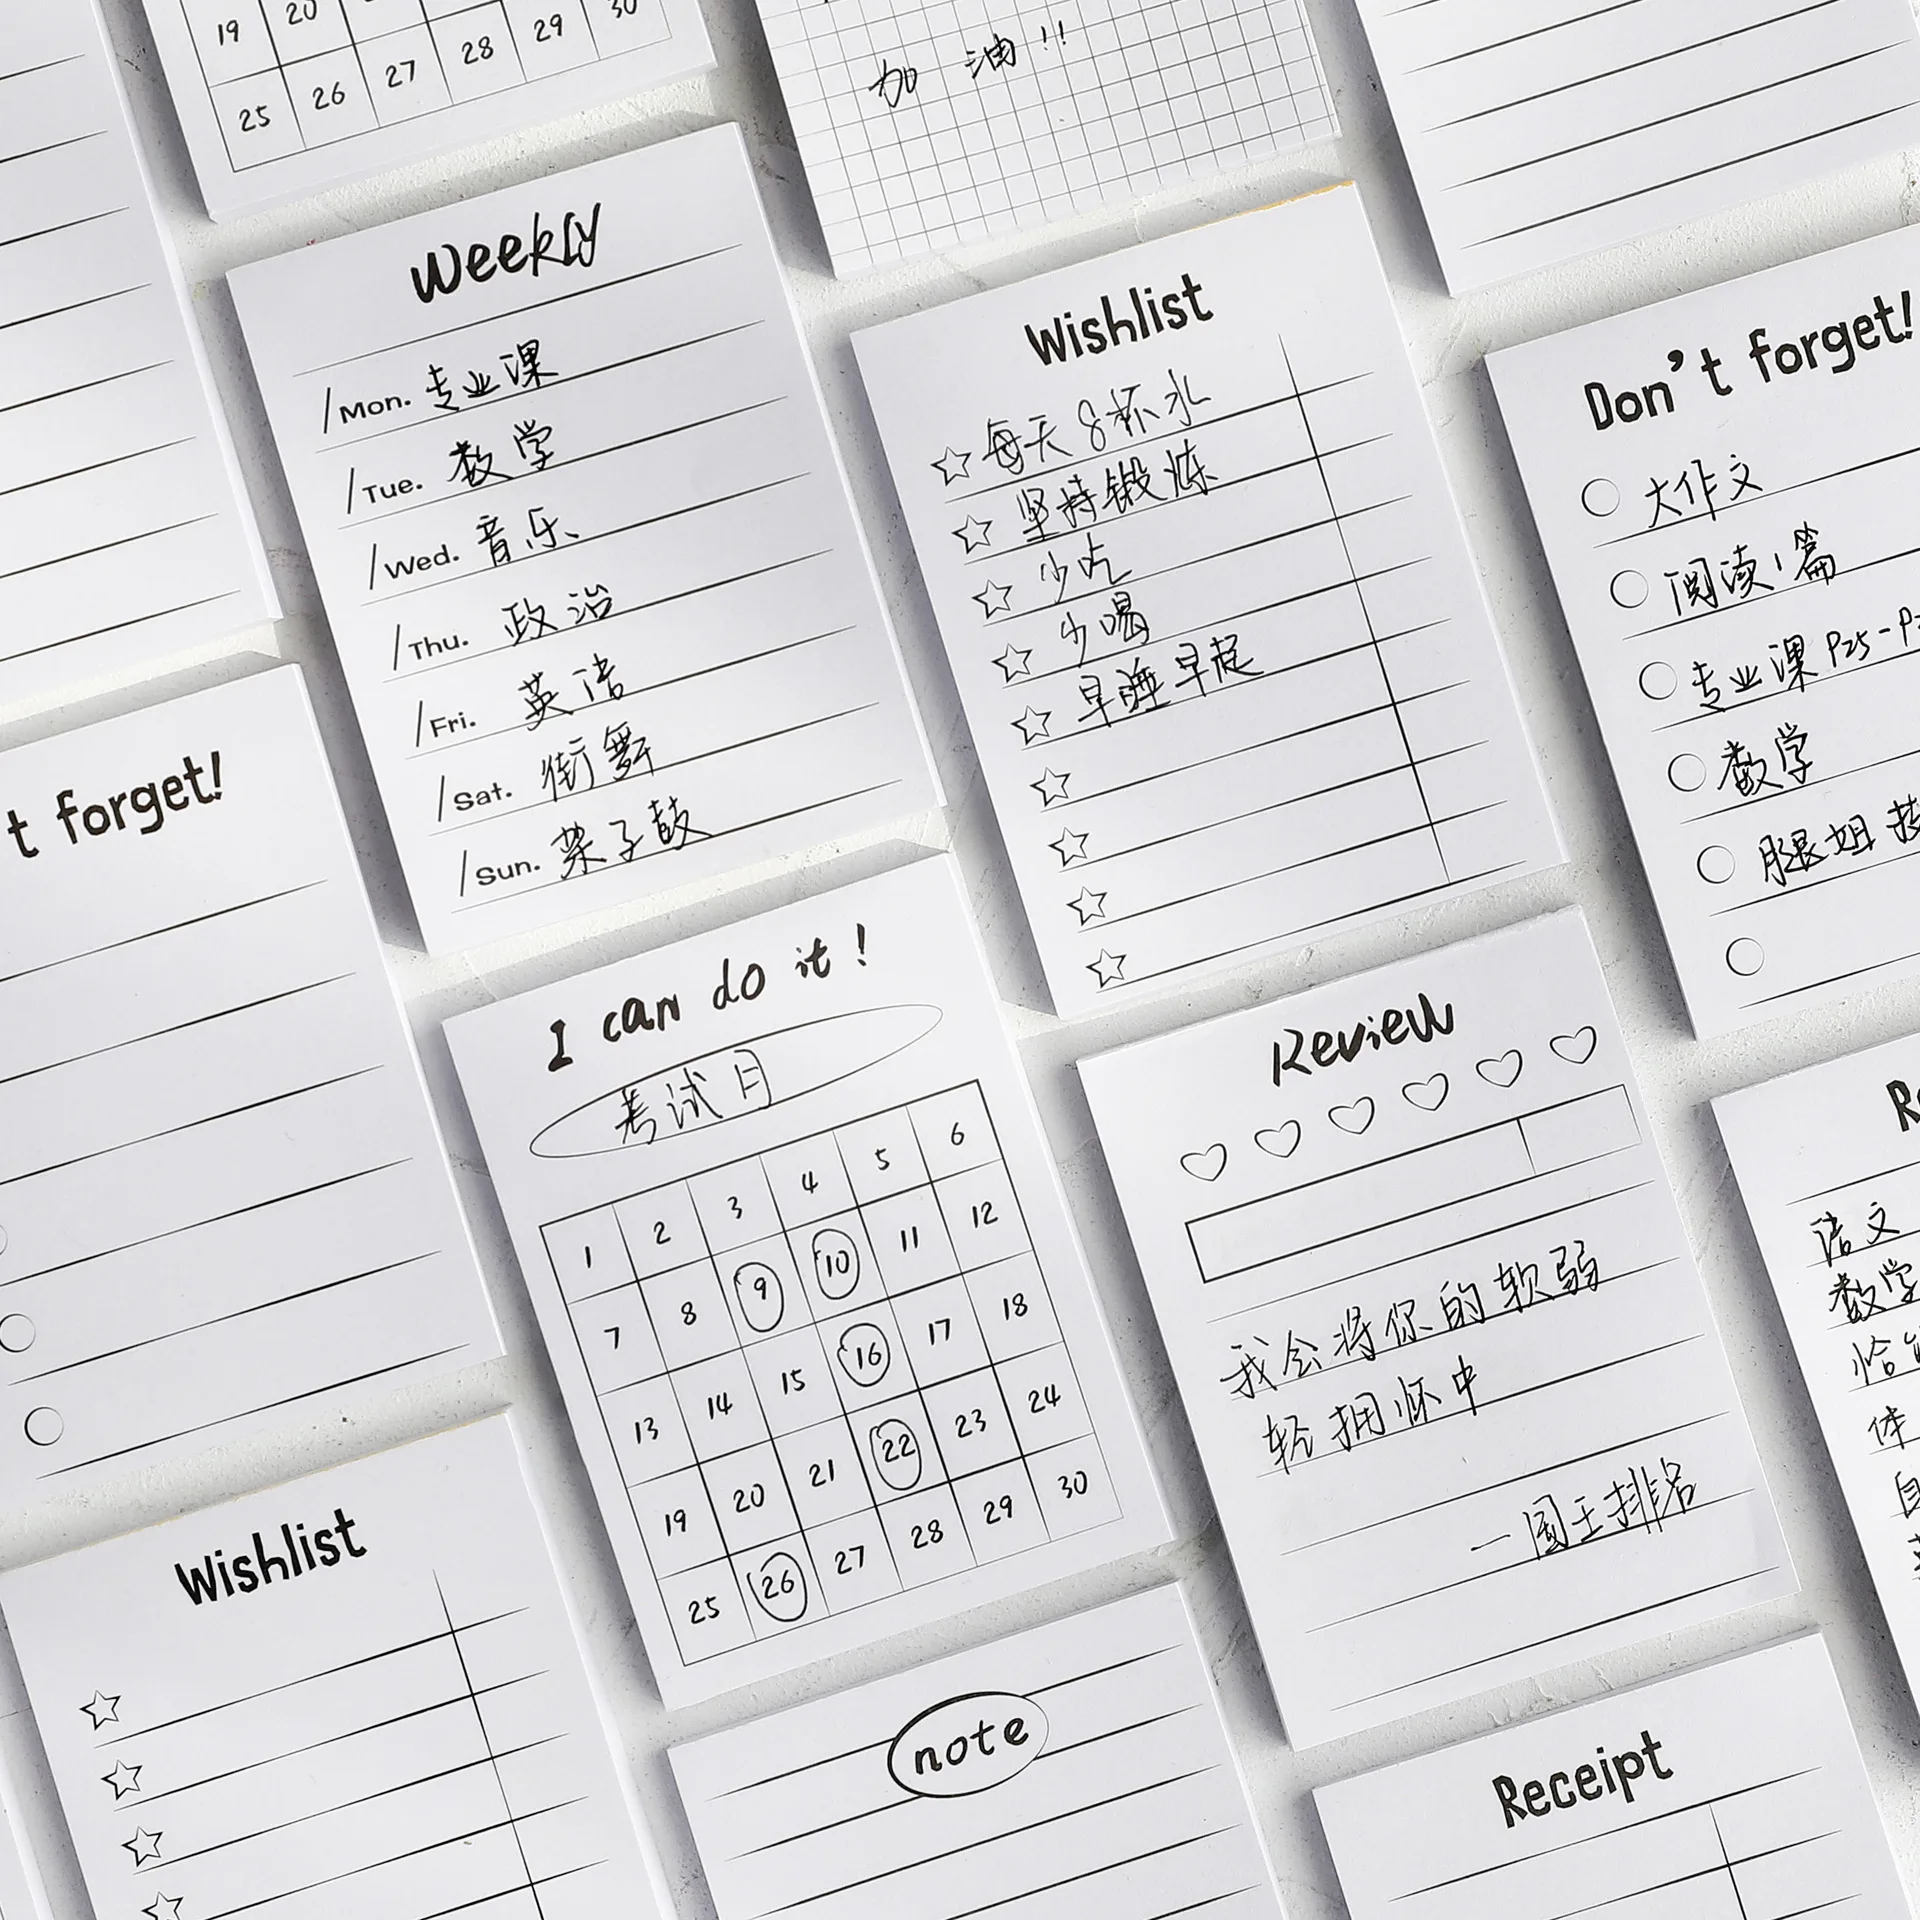 19 20 30
25 26 27 28 29
加油!!
Weekly
/Mon. 专业课
/Tue. 数学
/Wed. 音乐
/Thu. 政治
/Fri. 英语
/Sat. 街舞
/Sun. 架子鼓
Wishlist
每天8杯水
坚持锻炼
少吃
少喝
早睡早起
Don't forget!
大作文
阅读1篇
专业课 P25-P
数学
腿姐
t forget!
I can do it!
考试日
1 2 3 4 5 6
7 8 9 10 11 12
13 14 15 16 17 18
19 20 21 22 23 24
25 26 27 28 29 30
Review
我会将你的软弱
轻拥怀中
—国王排名
语文
数学
体
Wishlist
note
Receipt